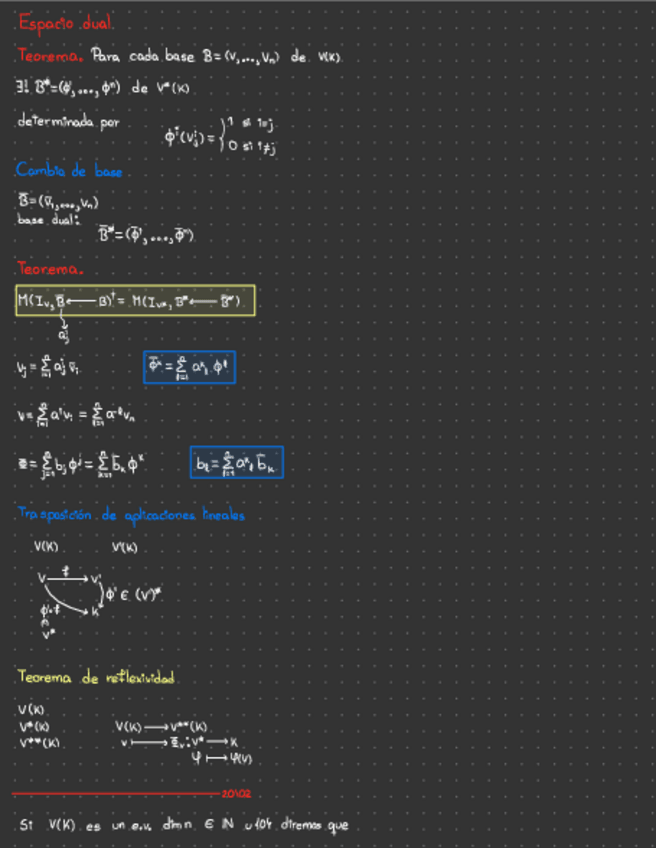 Espacio dual
Teorema. Para cada base B=(v₁,...,vₙ) de V(K)
∃! B*=(ϕ¹,...,ϕⁿ) de V*(K)
determinada por ϕⁱ(vⱼ)={1 si i=j
0 si i≠j
Cambio de base
B̄=(v̄₁,...,v̄ₙ)
base dual:
B̄*=(ϕ̄¹,...,ϕ̄ⁿ)
Teorema.
M(Iᵥ, B̄ ⟵ B)ᵗ = M(Iᵥ*, B* ⟵ B̄*)
aⁱⱼ
vⱼ = Σⁿᵢ₌₁ aⁱⱼ v̄ᵢ ϕ̄ᵏ = Σⁿₗ₌₁ aᵏₗ ϕˡ
v = Σⁿᵢ₌₁ aⁱvᵢ =
Φ = Σⁿⱼ₌₁ bⱼϕʲ = Σⁿₖ₌₁ b̄ₖ ϕ̄ᵏ bₗ = Σ aᵏₗ b̄ₖ
Trasposición de aplicaciones lineales
V(K) V'(K)
V f ⟶ V'
ϕ'∘f K ϕ' ∈ (V')*
V*
Teorema de reflexividad
V(K)
V*(K) V(K) ⟶ V**(K)
V**(K) v ⟼ Φᵥ: V* ⟶ K
φ ⟼ φ(v)
20\02
Si V(K) es un e.v. dim n ∈ ℕ ∪{0} diremos que